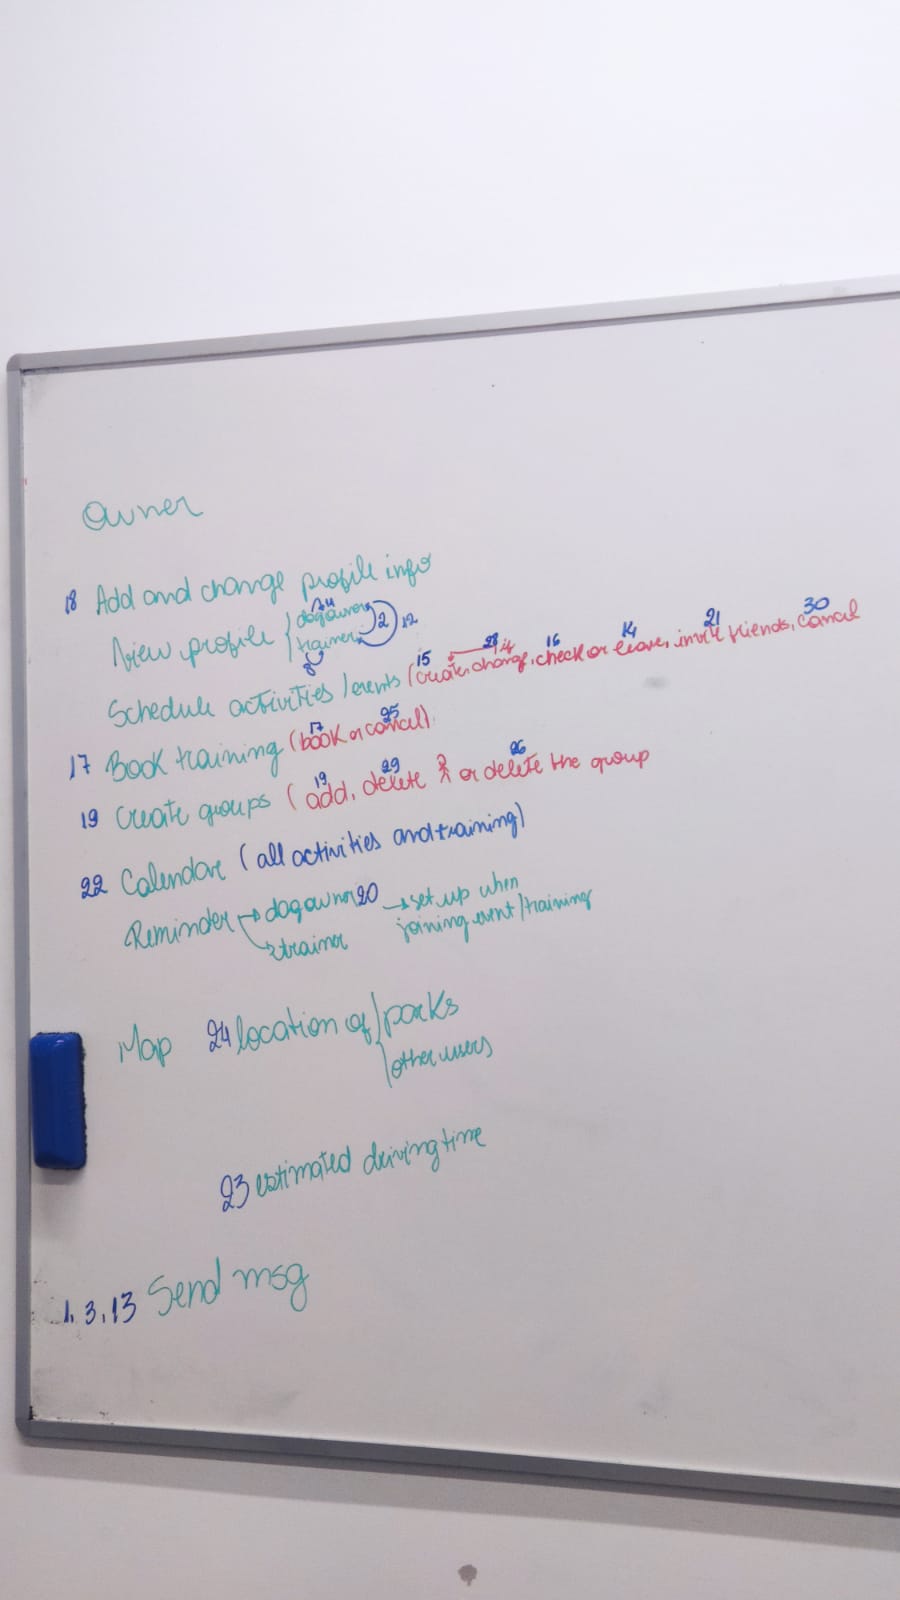 Owner
18 Add and change profile info
View profile dogowner 2 12
trainer
8
15 28 16 14 21 30
Schedule activities / events (create, change it, check or leave, invite friends, cancel
17 25
17 Book training (book or cancel)
19 29 26
19 Create groups (add, delete or delete the group
22 Calendare (all activities and training)
Reminder → dogowner 20 → set up when
→ trainer joining event / training
Map 24 location of parks
other users
23 estimated driving time
1, 3, 13 Send msg